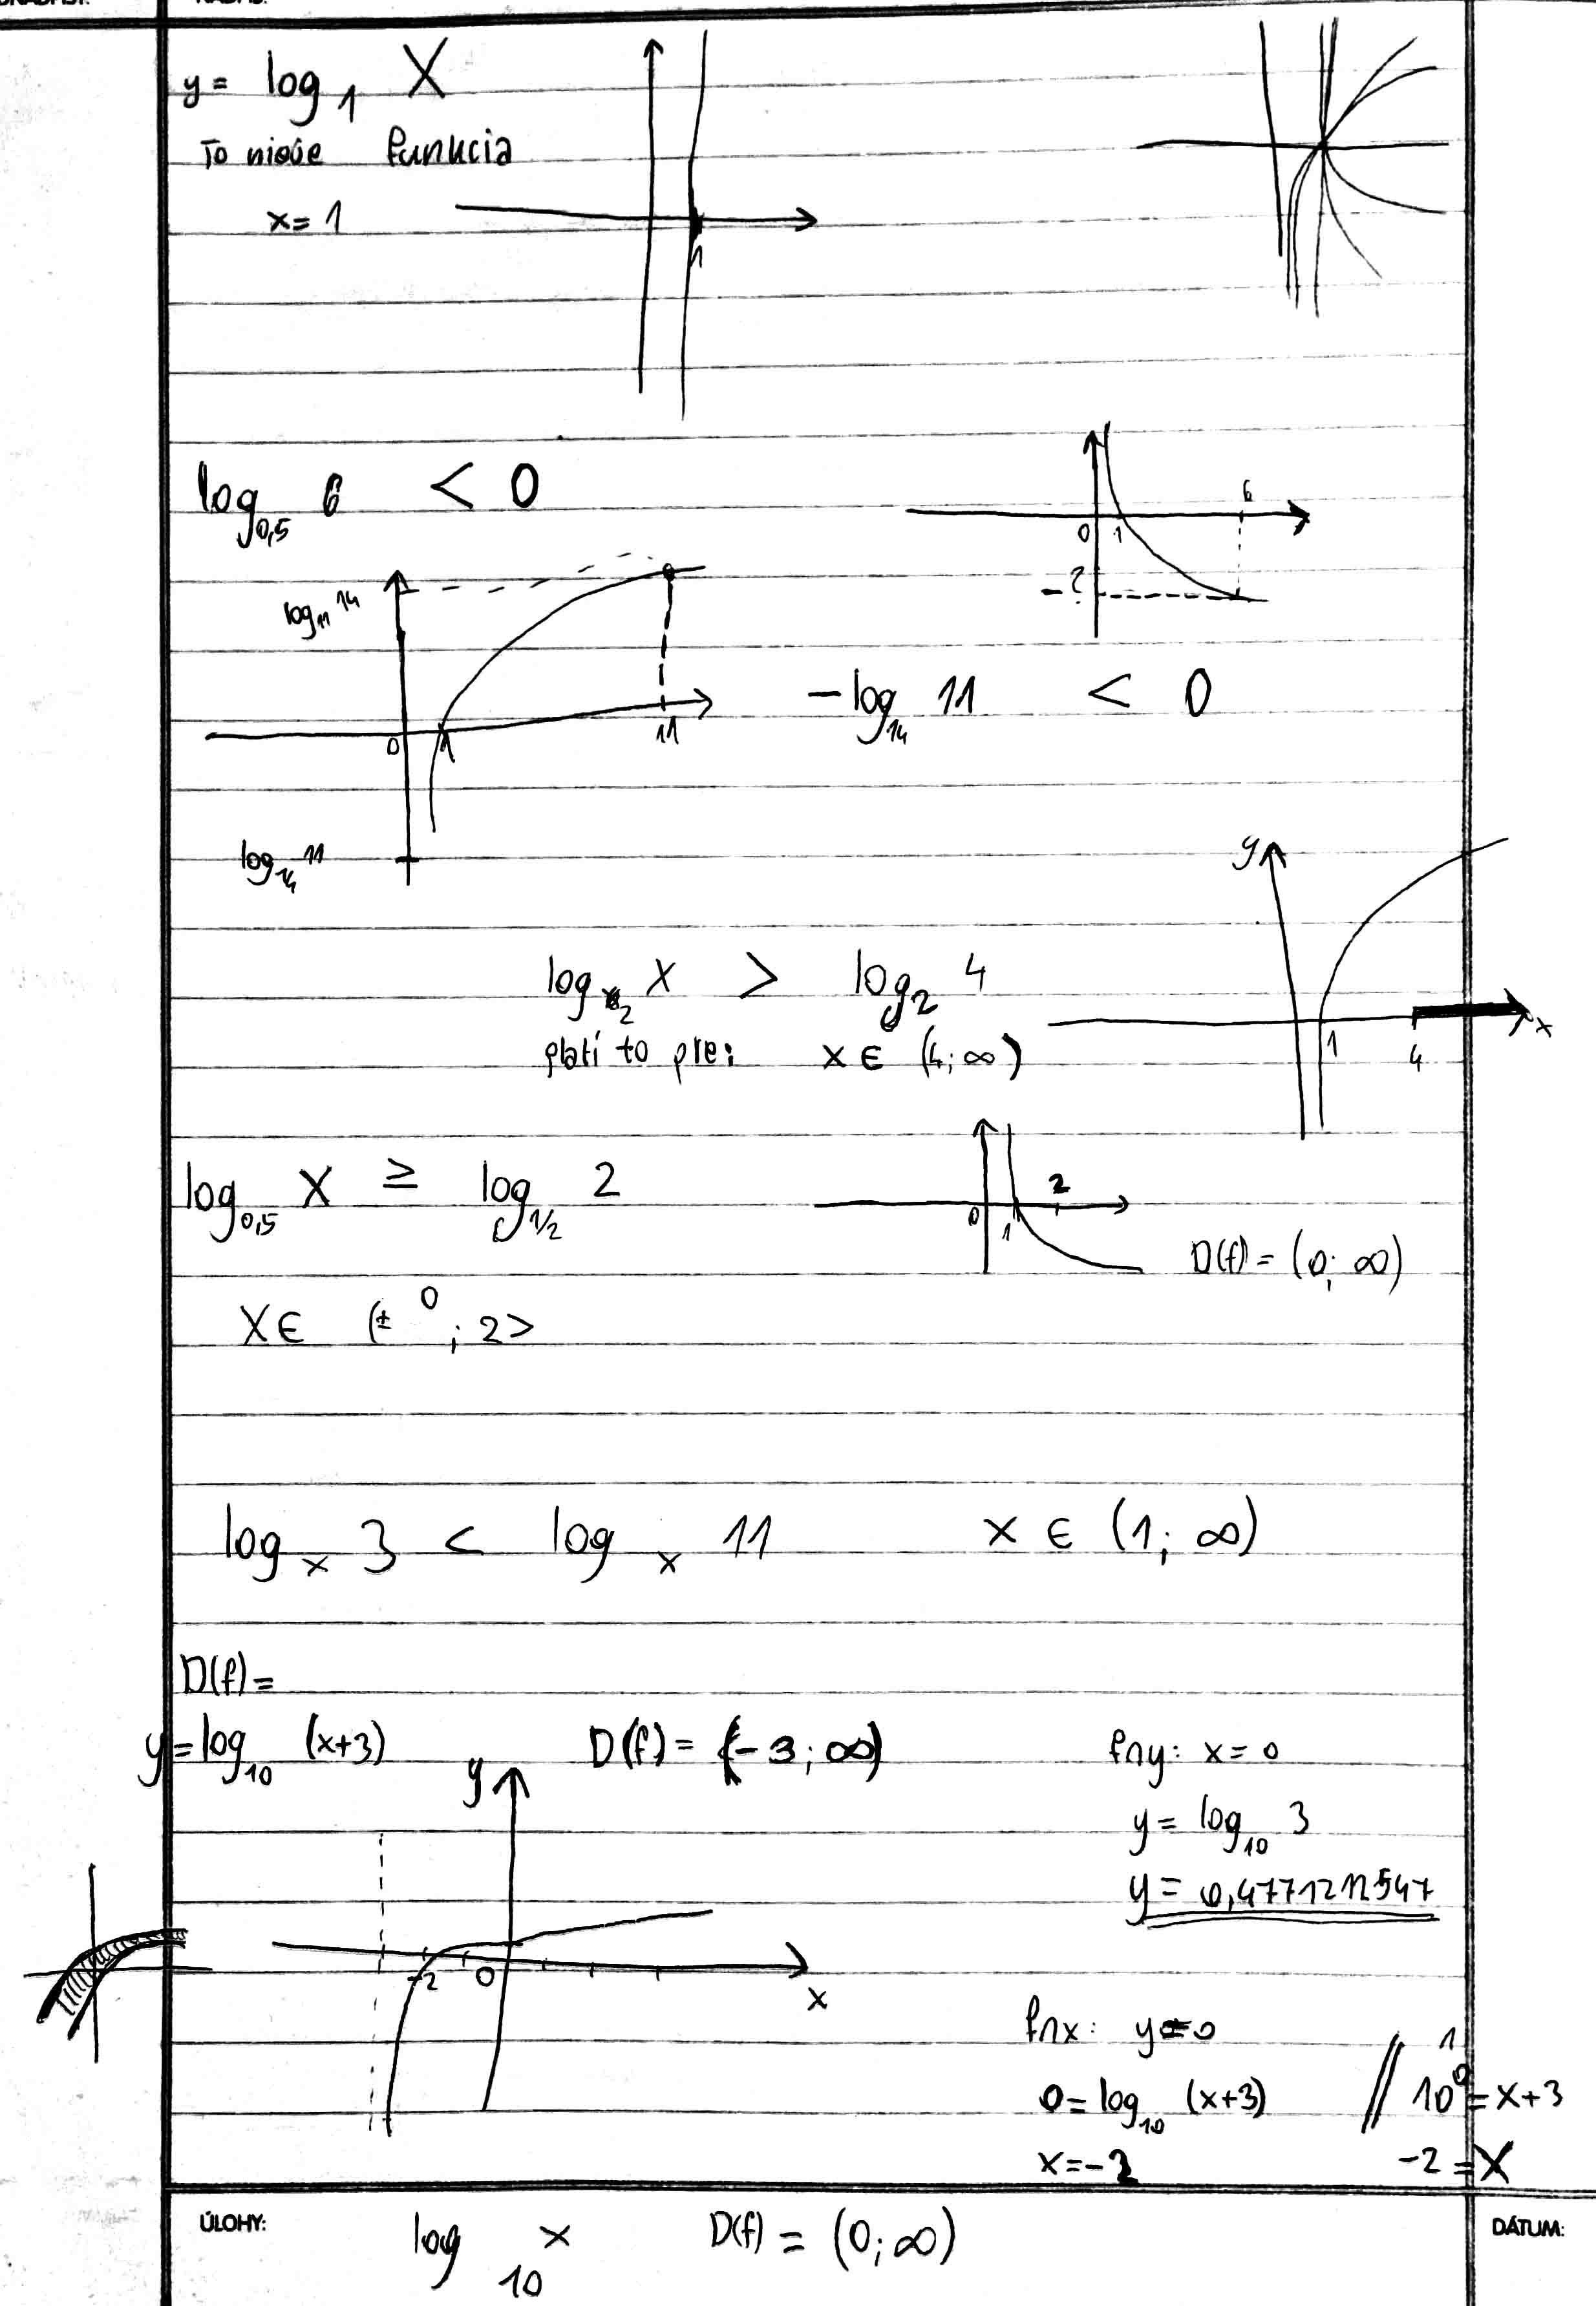 y = log₁ X
To nieje funkcia
x = 1
1
log₀,₅ 6 < 0
6
0 1
-?
log₁₁ 14
-log₁₄ 11 < 0
0 1 11
log₁₄ 11
y
log₂ X > log₂ 4
platí to pre: x ∈ (4; ∞)
1 4 x
log₀,₅ X ≥ log₁/₂ 2
2
0 1
D(f) = (0; ∞)
X ∈ (± 0 ; 2>
logₓ 3 < logₓ 11 x ∈ (1; ∞)
D(f) =
y = log₁₀ (x+3) D(f) = (-3; ∞) PNY: x = 0
y
y = log₁₀ 3
y = 0,4771212547
-2 0 x
PNX: y = 0
0 = log₁₀ (x+3) // 10⁰ = x+3
1
x = -2 -2 = X
ÚLOHY: log₁₀ x D(f) = (0; ∞) DÁTUM: